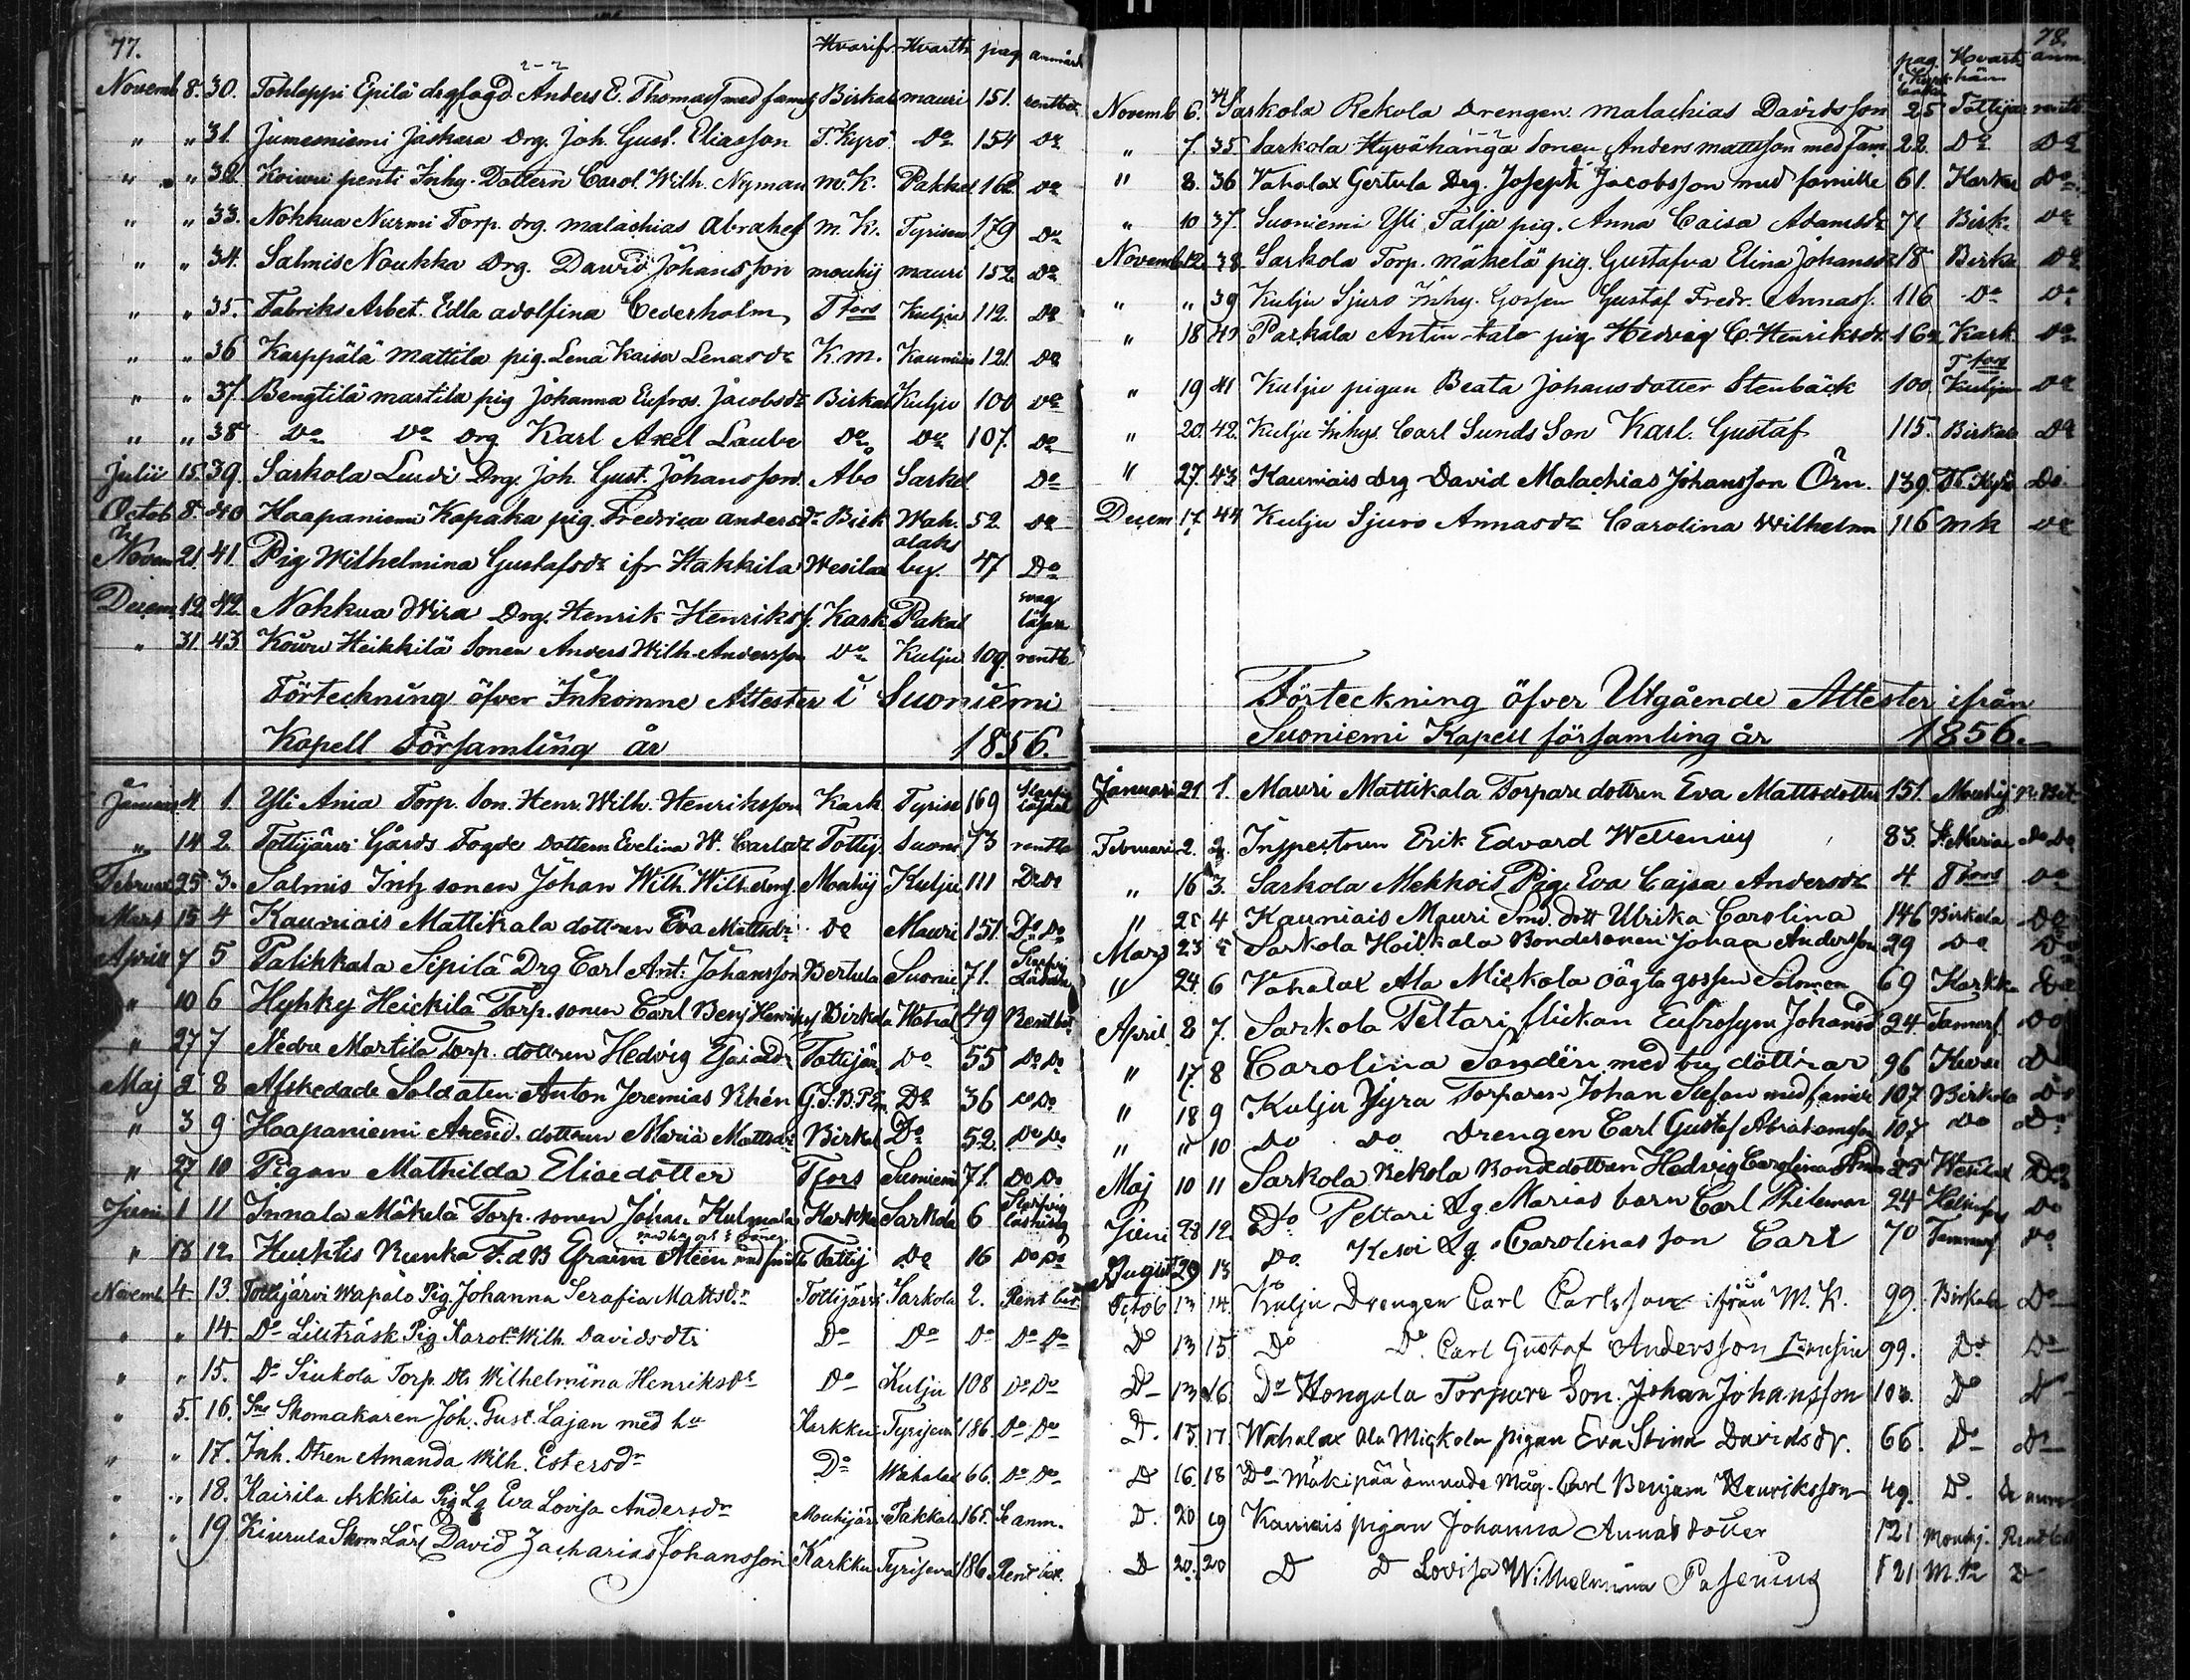 77.
Hvarifr. Hvarth. pag anmärk
Novemb 8. 30. Tohloppi Epilä drgfogd. Anders E. Thomass med famij Birkal mauri 151. rentbet
" " 31. Jumesniemi Jaskara Drg. Joh. Gust. Eliasson T.Kyro Do 154 Do
" " 32. Koivu penti Inhy. Dottern Carol. Wilh. Nyman m.K. Pakkal 162 Do
" " 33. Nohkua Nurmi Torp. drg. malachias Abrahef m.K. Tyrisev 179 Do
" " 34. Salmis Noukka Drg. Dawid Johansson mouhij mauri 152 Do
" " 35. Fabriks Arbet. Edla adolfina Cederholm Tfors Kulju 112. Do
" " 36 Karppälä Mattila pig. Lena Kaisa Lenasdr K.m. Kauniais 121. Do
" " 37. Bengtilä martila pig Johanna Eufros. Jacobsdr Birkal Kulju 100 Do
" " 38 Do Do Drg Karl Axel Laube Do Do 107. Do
Julii 15. 39. Sarkola Luodi Drg. Joh. Gust. Johansson Åbo Sarkol Do
Octob 8. 40 Haapaniemi Kapaka pig. Fredrica andersdr Birk Wah. 52. Do
Novem 21. 41. Pig Wilhelmina Gustafsdr ifr Hakkila Wesilax olaks by. 47 Do
Decem 12 42. Nohkua Wira Drg. Henrik Henriksf. Kark Pakal svag läsare
" 31. 43. Kouru Heikkilä Sonen Anders Wilh. Andersson Do Kulju 109. rentb
Förteckning öfver Inkomne Attester i Suoniemi
Kapell Församling år 1856.
Januari 4 1. Yli Ania Torp. Son. Henr. Wilh. Henriksson Kark Tyrise 169
" 14 2. Tottijärvi Gårds Fogde Dottern Evelina W. Carlsdr Tottij. Suoni 73 rentbe
Februar 25 3. Salmis Inh sonen Johan Wilh. Wilhelmsf. Mouhij Kulju 111 Do Do
Mars 15 4 Kauniais Mattikala dottren Eva Mattsdr Do Mauri 151. Do Do
April 7 5 Palikkala Sipilä Drg Carl Ant: Johansson Bertula Suoni 71.
" 10 6 Hyhky Heickilä Torp. sonen Carl Benj Henriks Birkala Wahal 49 Rent bet
" 27 7 Nedre Martila Torp. dottren Hedvig Esaiædr Tottijär Do 55 Do Do
Maj 2 8 Afskedade Soldaten Anton Jeremias Rhén Do 36 Do Do
" 3 9 Haapaniemi Arend. dottren Maria Mattsdr Birkal Do 52. Do Do
" 27 10 Pigan Mathilda Eliædotter Tfors Suoniemi 71. Do Do
Juni 1 11 Innala Mäkelä Torp. sonen Johan Kulmala Karkku Sarkola 6
" 18 12. Huuktis Runka F.d B Efraim Mein med famil Tottij Do 16 Do Do
Novemb. 4. 13. Tottijärvi Wapalo Pig. Johanna Serafia Mattsdr Tottijärvi Sarkola 2. Rent bet
" " 14 Do Lillträsk Pig Karola Wilh. Davidsdtr Do Do Do Do Do
" " 15. Do Siukola Torp. Dtr Wilhelmina Henriksdr Do Kulju 108 Do Do
" 5. 16. Skomakaren Joh. Gust. Lajan med hu Karkku Tyrisevä 186. Do Do
" " 17. Inh. Dtren Amanda Wilh. Estersdr Do Wahalax 66. Do Do
" " 18. Kairila Arkkila Pig Lg Eva Lovisa Andersdr Mouhijär Pakkala 165. Se anm.
" " 19. Kiurula Skom Lärl David Zacharias Johansson Karkku Tyriseva 186 Rent bet.
78.
pag. Hvart anm.
Novemb 6. 34 Sarkola Rekola Drengen malachias Davidsson 25 Tottijär rentb
" 7. 35. Sarkola Hyvähängä Sonen Anders mattsson med Fam 22. Do Do
" 8. 36 Vahalax Gertula Drg. Joseph Jacobsson med famille 61. Karku Do
" 10 37. Suoniemi Yli Talja pig. Anna Caisa Adamsdr 71 Birk. Do
Novemb 12. 38 Sarkola Torp. mäkelä pig. Gustafva Elina Johansdr 18 Birka Do
" " 39 Kulju Sjuro Inhy. Gossen Gustaf Fredr. Annass. 116 Do Do
" 18 40 Parkala Antin-talo pig Hedvig C. Henriksdr 162 Kark. Do
" 19 41 Kulju pigan Beata Johansdotter Stenbäck 100 Tfors Kulju Do
" 20. 42. Kulju Inhys. Carl Sunds Son Karl. Gustaf 115. Birkal Do
" 27. 43 Kauniais drg David Malachias Johansson Örn. 139. Kyrö Do
Decem 17. 44 Kulju Sjuro Annasdr Carolina Wilhelm 116 m k Do
Förteckning öfver Utgående Attester ifrån
Suoniemi Kapell församling år 1856.
Januari 21 1. Mauri Mattikala Torpare dottren Eva Mattsdotter 151. Mouhij R. Bet
Februari 2. 2. Inspectoren Erik Edvard Wellenius 83. St Mariae Do Do
" 16 3. Sarkola Mekkois Pig. Eva Cajsa Andersdr 4. Tfors Do
" 4 Kauniais Mauri Smd. dott Ulrika Carolina 146 Birkala Do
Mars 23 5 Sarkola Hoikkala Bondesonen Johan Andersson 29 Do Do
" 24. 6 Vahalax Ala Mickola oägta gossen Salomon 69 Karkku Do
April 8 7. Sarkola Peltari flickan Eufrosyne Johansd 24. Tamerf. Do
" 17. 8 Carolina Sondén med try döttrar 96 D
" 18 9 Kulju Yyra Torparen Johan Stefan med famille 107 Birkala Do
" " 10 Do Do Drengen Carl Gustaf Abrahamsson 107 Do Do
Maj 10 11 Sarkola Rekola Bondedottren Hedvig Carolina 25 Wesilax Do
Juni 28 12. Do Peltari Lg. Marias barn Carl Thileman 24 Do
August 29 13 Do. Kesoi Lg. Carolinas son Carl 70 Tammerf Do
Octob 13 14. Kulju Drengen Carl Carlsson ifrån M. K. 99. Birkala Do
D 13 15 Do Do. Carl Gustaf Andersson 99. Do Do
D 13 16 Do Hongala Torpare Son. Johan Johansson Do D
D. 15 17 Wahalax Ala Mickola pigan Eva Stina Davidsdr. 66. Do Do
D 16 18 Do Mäkipää ämnade Måg. Carl Benjam Henriksson 49. D. Se anm
D. 20 19 Kauniais pigan Johanna Annas dotter 121 Mouhij. Rent bet
D 20. 20 D D Lovisa Wilhelmina Pasenius 121 M. K D